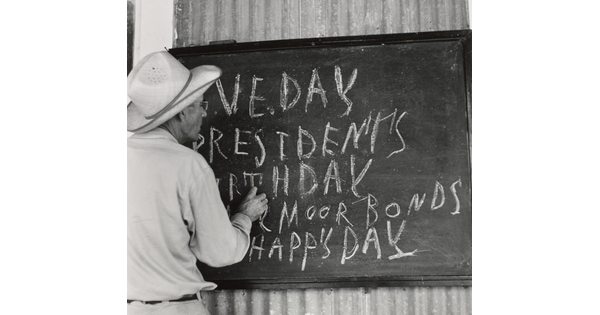 VE.DAY
PRESIDENT'S
BIRTHDAY
MOOR BONDS
HAPP'S DAY